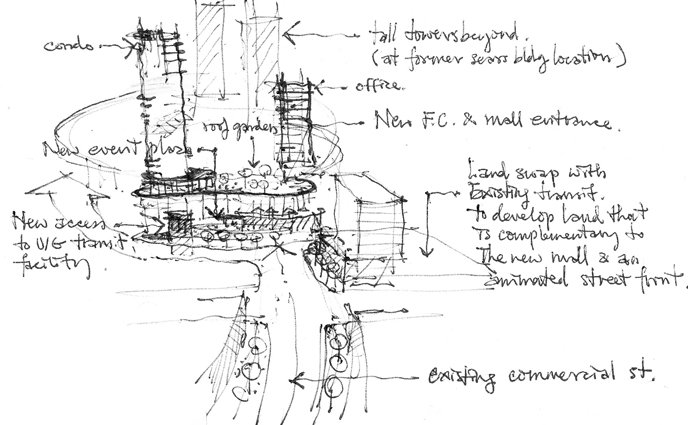 condo
tall towers beyond.
(at former sears bldg location)
office.
roof garden
New F.C. & mall entrance.
New event plaza
Land swap with
Existing transit.
to develop land that
is complementary to
the new mall & an
animated street front.
New access
to U/G transit
facility.
existing commercial st.